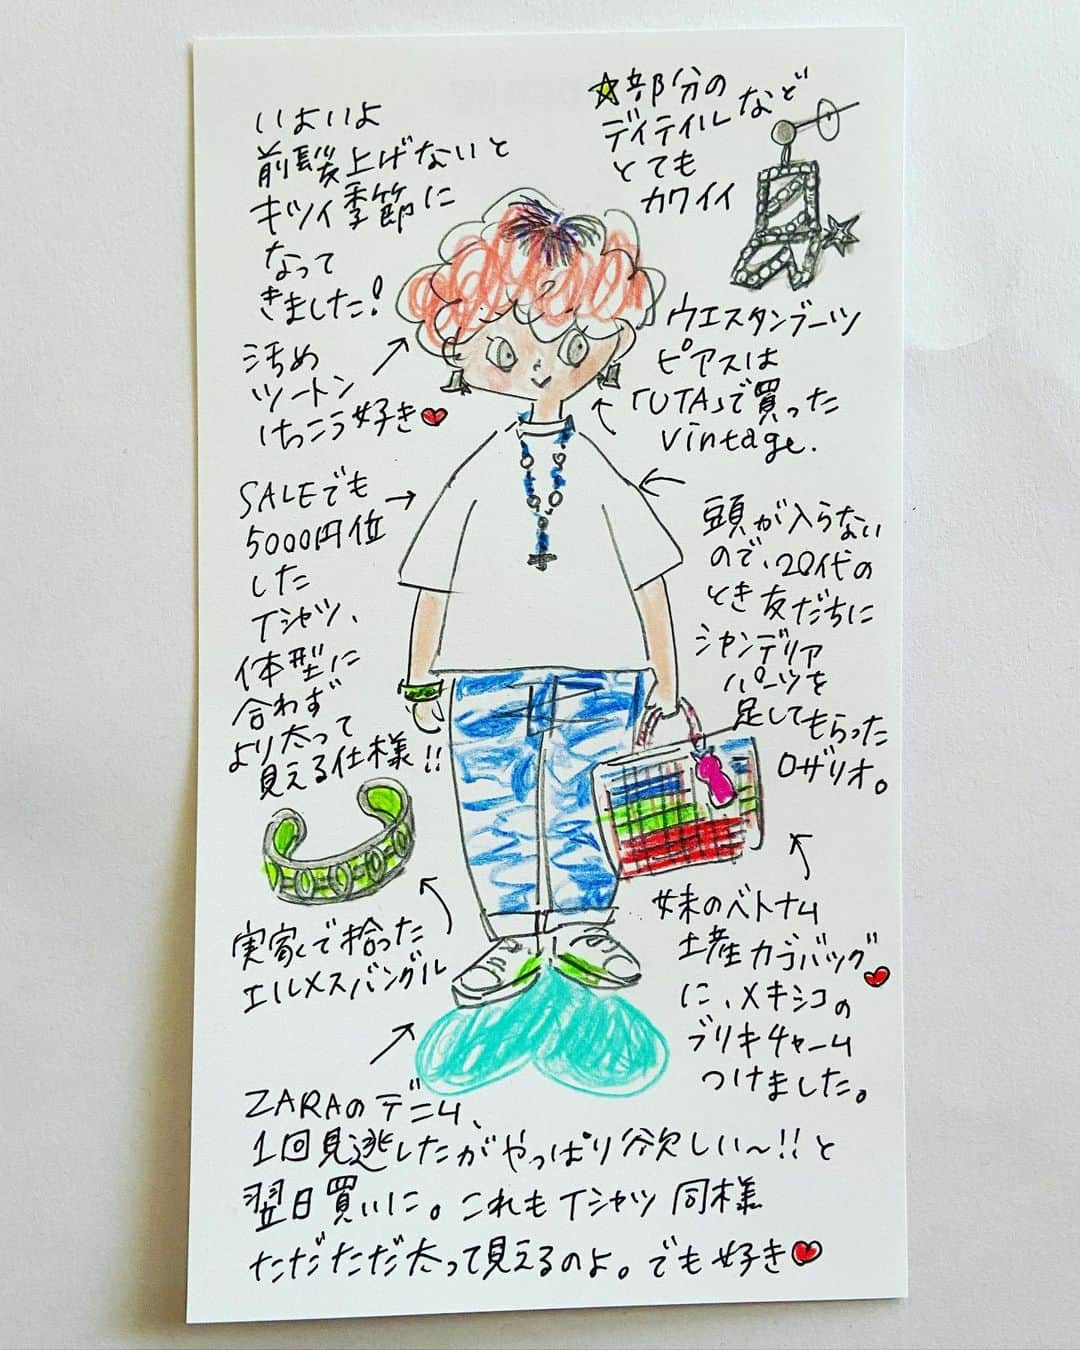 いよいよ
前髪上げないと
キツイ季節に
なって
きました!
汚め
ツートン
けっこう好き
☆部分の
ディテイルなど
とても
カワイイ
ウエスタンブーツ
ピアスは
「UTA」で買った
vintage.
SALEでも
5000円位
した
Tシャツ、
体型に
合わず
より太って
見える仕様!!
頭が入らない
ので、20代の
とき友だちに
シャンデリア
パーツを
足してもらった
ロザリオ。
実家で拾った
エルメスバングル
妹のベトナム
土産カゴバッグ
に、メキシコの
ブリキチャーム
つけました。
ZARAのデニム、
1回見逃したがやっぱり欲しい〜!!と
翌日買いに。これもTシャツ同様
ただただ太って見えるのよ。でも好き